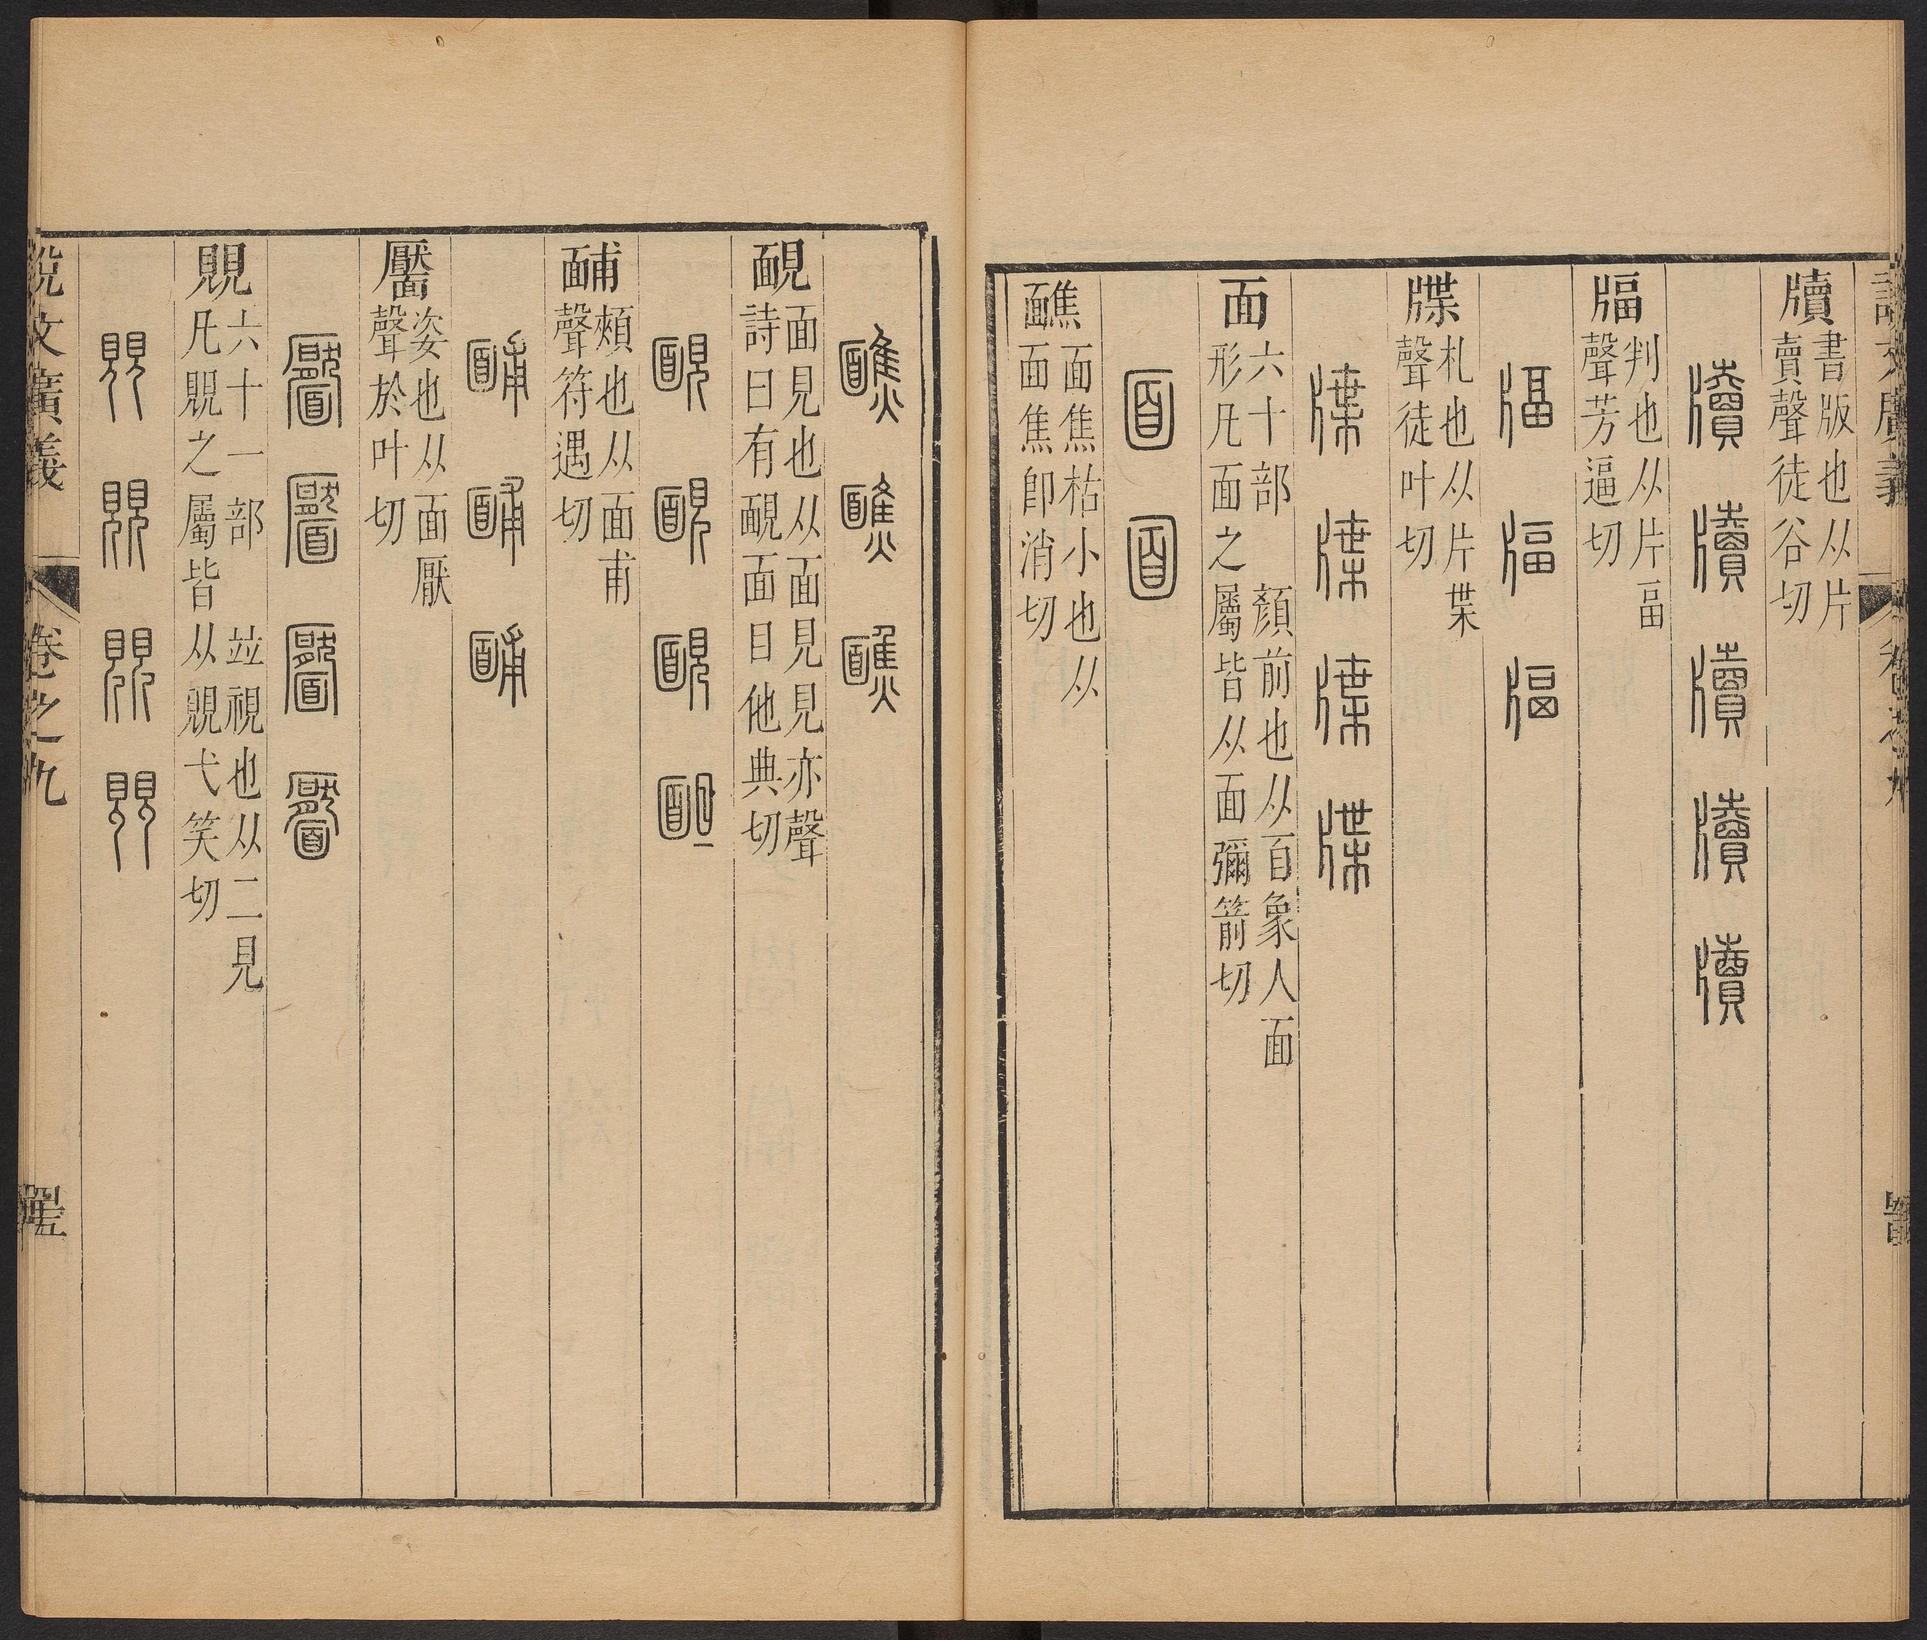 說文廣義 卷之九
牘 書版也从片
賣聲徒谷切
牘 牘 牘 牘 牘
牑 判也从片畐
聲芳逼切
牑 牑 牑
牒 札也从片枼
聲徒叶切
牒 牒 牒 牒
面 六十部 顏前也从𦣻象人面
形凡面之屬皆从面彌箭切
面 面
䩌 面焦枯小也从
面焦即消切
䩌 䩌 䩌
靦 面見也从面見見亦聲
詩曰有靦面目他典切
靦 靦 靦 靦
䩉 頰也从面甫
聲符遇切
䩉 䩉 䩉
靨 姿也从面厭
聲於叶切
靨 靨 靨 靨
覞 六十一部 竝視也从二見
凡覞之屬皆从覞弋笑切
覞 覞 覞 覞
說文廣義 卷之九 四十五